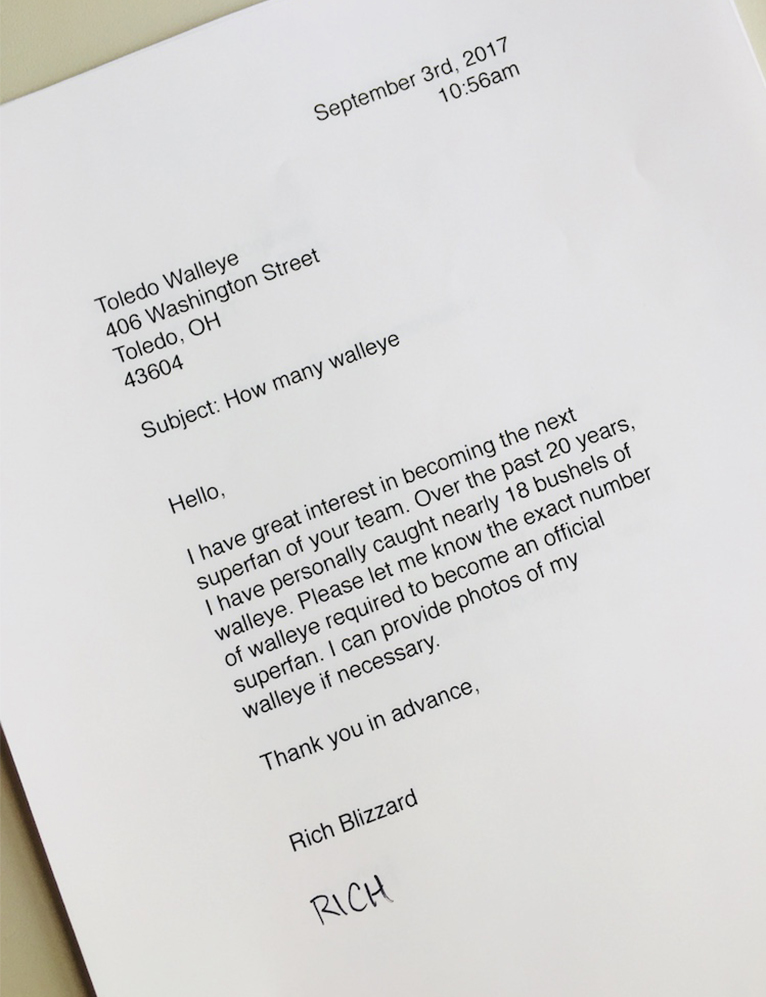 September 3rd, 2017
10:56am
Toledo Walleye
406 Washington Street
Toledo, OH
43604
Subject: How many walleye
Hello,
I have great interest in becoming the next
superfan of your team. Over the past 20 years,
I have personally caught nearly 18 bushels of
walleye. Please let me know the exact number
of walleye required to become an official
superfan. I can provide photos of my
walleye if necessary.
Thank you in advance,
Rich Blizzard
RICH